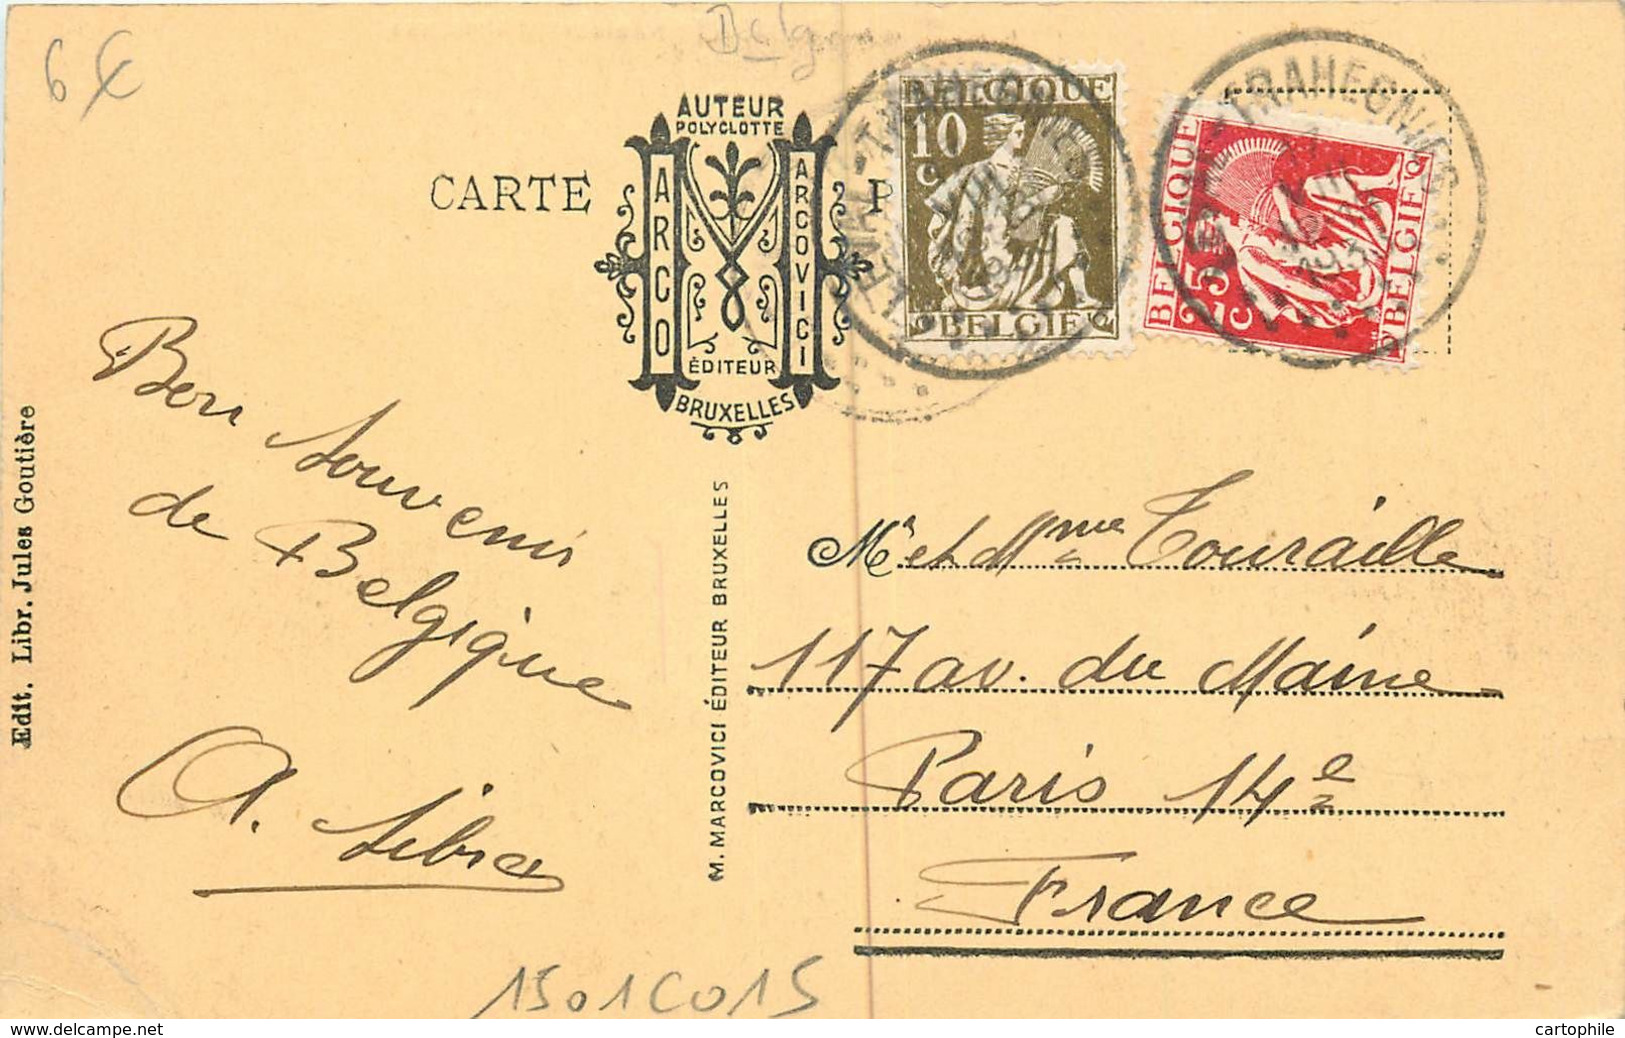 6 €
Belgique
AUTEUR
POLYGLOTTE
MARCO
MARCOVICI
ÉDITEUR
BRUXELLES
CARTE P
BELGIQUE
10
c
BELGIE
BELGIQUE
25
c
BELGIE
TRAHEGNIES
Bon Souvenir
de Belgique
Edit. Libr. Jules Goutière
M. MARCOVICI ÉDITEUR BRUXELLES
Mr et Mme Touraille
117 av. du Maine
Paris 14e
France
1501C015
www.delcampe.net
cartophile